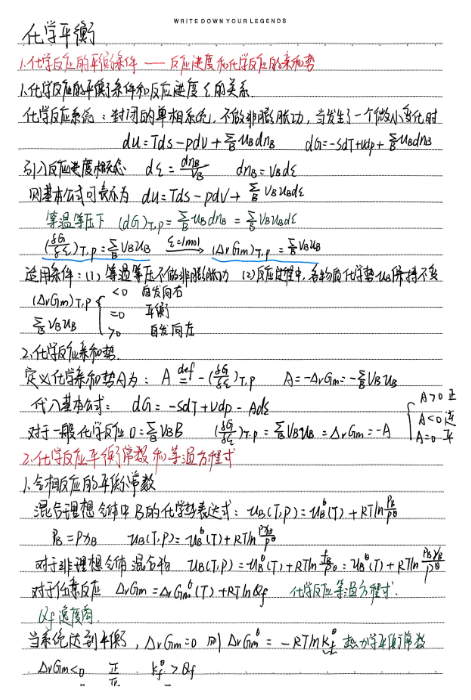 WRITE DOWN YOUR LEGENDS
化学平衡
1.化学反应的平衡条件 —— 反应进度和化学反应的亲和势
1.化学反应的平衡条件和反应进度ξ的关系
化学反应系统：封闭的单相系统，不做非膨胀功，当发生了一个微小变化时
du=Tds-pdv+∑B uBdnB dG=-sdT+vdp+∑B uBdnB
引入反应进度概念 dξ=dnB/νB dnB=νBdξ
则基本公式可表示为 du=Tds-pdv+∑B νBuBdξ
等温等压下 (dG)T,p=∑B uBdnB=∑B νBuBdξ
(δG/δξ)T,p=∑B νBuB ξ=1mol → (ΔrGm)T,p=∑B νBuB
适用条件：(1) 等温等压不做非膨胀功 (2)反应过程中,各物质化学势uB保持不变
(ΔrGm)T,p <0 自发向右
=0 平衡
∑B νBuB >0 自发向左
2.化学反应亲和势.
定义化学亲和势A为：A def= -(δG/δξ)T,p A=-ΔrGm=-∑B νBuB
代入基本公式：dG=-sdT+vdp-Adξ
A>0 正
A<0 逆
A=0 平
对于一般化学反应 0=∑B νBB (δG/δξ)T,p=∑B νBuB=ΔrGm=-A
2.化学反应平衡常数和等温方程式
1.气相反应的平衡常数
混合理想气体中B的化学势表达式：uB(T,P)=uB^θ(T)+RTln PB/P^θ
PB=PxB uB(T,P)=uB^θ(T)+RTln PxB/P^θ
对于非理想气体混合物 uB(T,P)=uB^θ(T)+RTln fB/P^θ=uB^θ(T)+RTln PBγB/P^θ
对于任意反应 ΔrGm=ΔrGm^θ(T)+RTlnQf 化学反应等温方程式.
Qf 逸度商
当系统达到平衡，ΔrGm=0 则 ΔrGm^θ=-RTlnKf^θ 热力学平衡常数
ΔrGm<0 正 Kf^θ>Qf